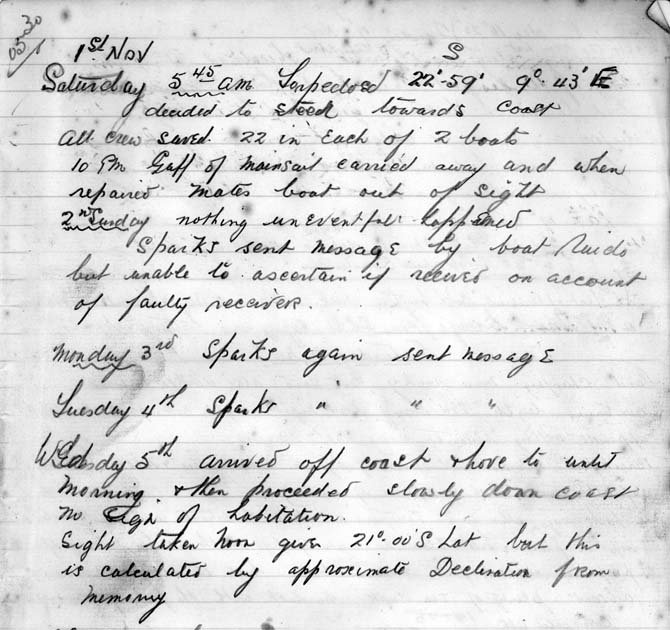 0530
1st Nov S
Saturday 5 45 am Torpedoed 22°-59' 9°-43' E
decided to steer towards coast
all crew saved. 22 in Each of 2 boats
10 PM Gaff of mainsail carried away and when
repaired mates boat out of sight
2nd Sunday nothing uneventful happened
Sparks sent message by boat Raido
but unable to ascertain if recived on account
of faulty reciver.
Monday 3rd Sparks again sent message
Tuesday 4th Sparks " " "
Wedesday 5th arrived off coast & hove to until
morning & then proceeded slowly down coast
no sign of habitation.
Sight taken Noon gives 21°-00'S Lat but this
is calculated by approximate Declination from
memory